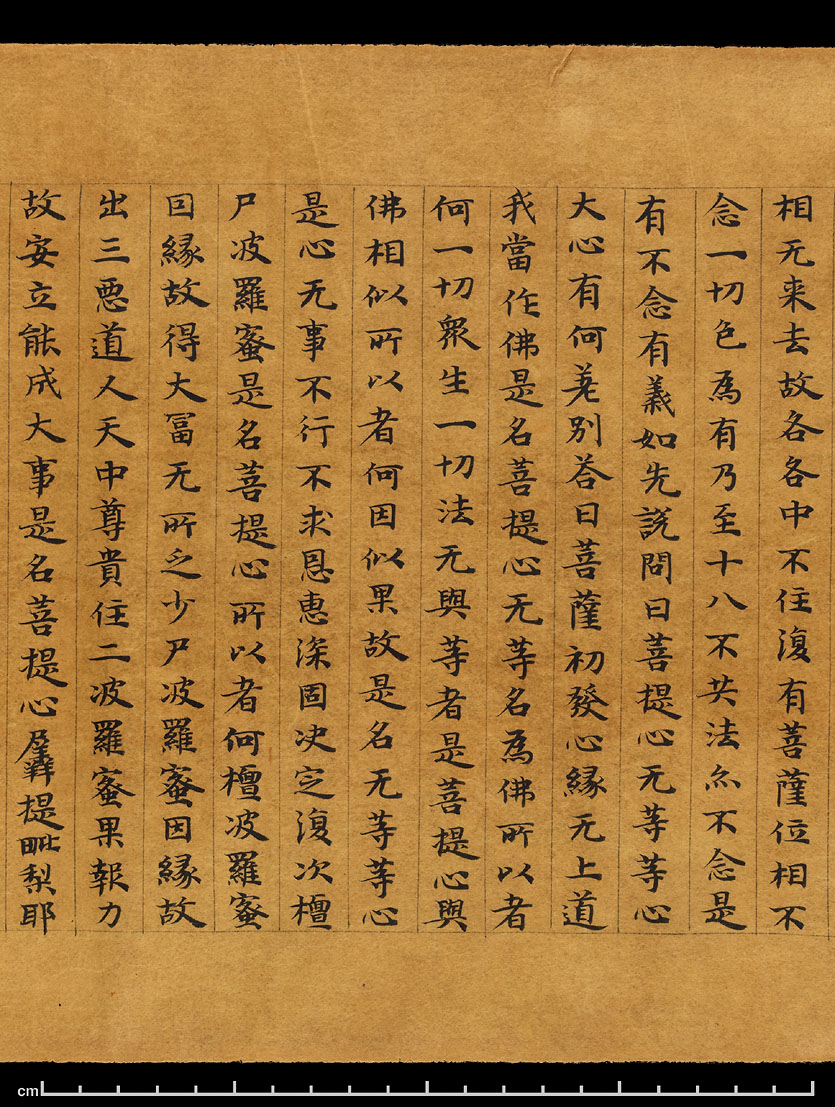 相无来去故各各中不住復有菩薩位相不
念一切色為有乃至十八不共法亦不念是
有不念有義如先說問曰菩提心无等等心
大心有何差別荅曰菩薩初發心緣无上道
我當作佛是名菩提心无等名為佛所以者
何一切衆生一切法无與等者是菩提心與
佛相似所以者何因似果故是名无等等心
是心无事不行不求恩惠深固决定復次檀
尸波羅蜜是名菩提心所以者何檀波羅蜜
因緣故得大冨无所乏少尸波羅蜜因緣故
出三惡道人天中尊貴住二波羅蜜果報力
故安立能成大事是名菩提心羼提毗梨耶
cm